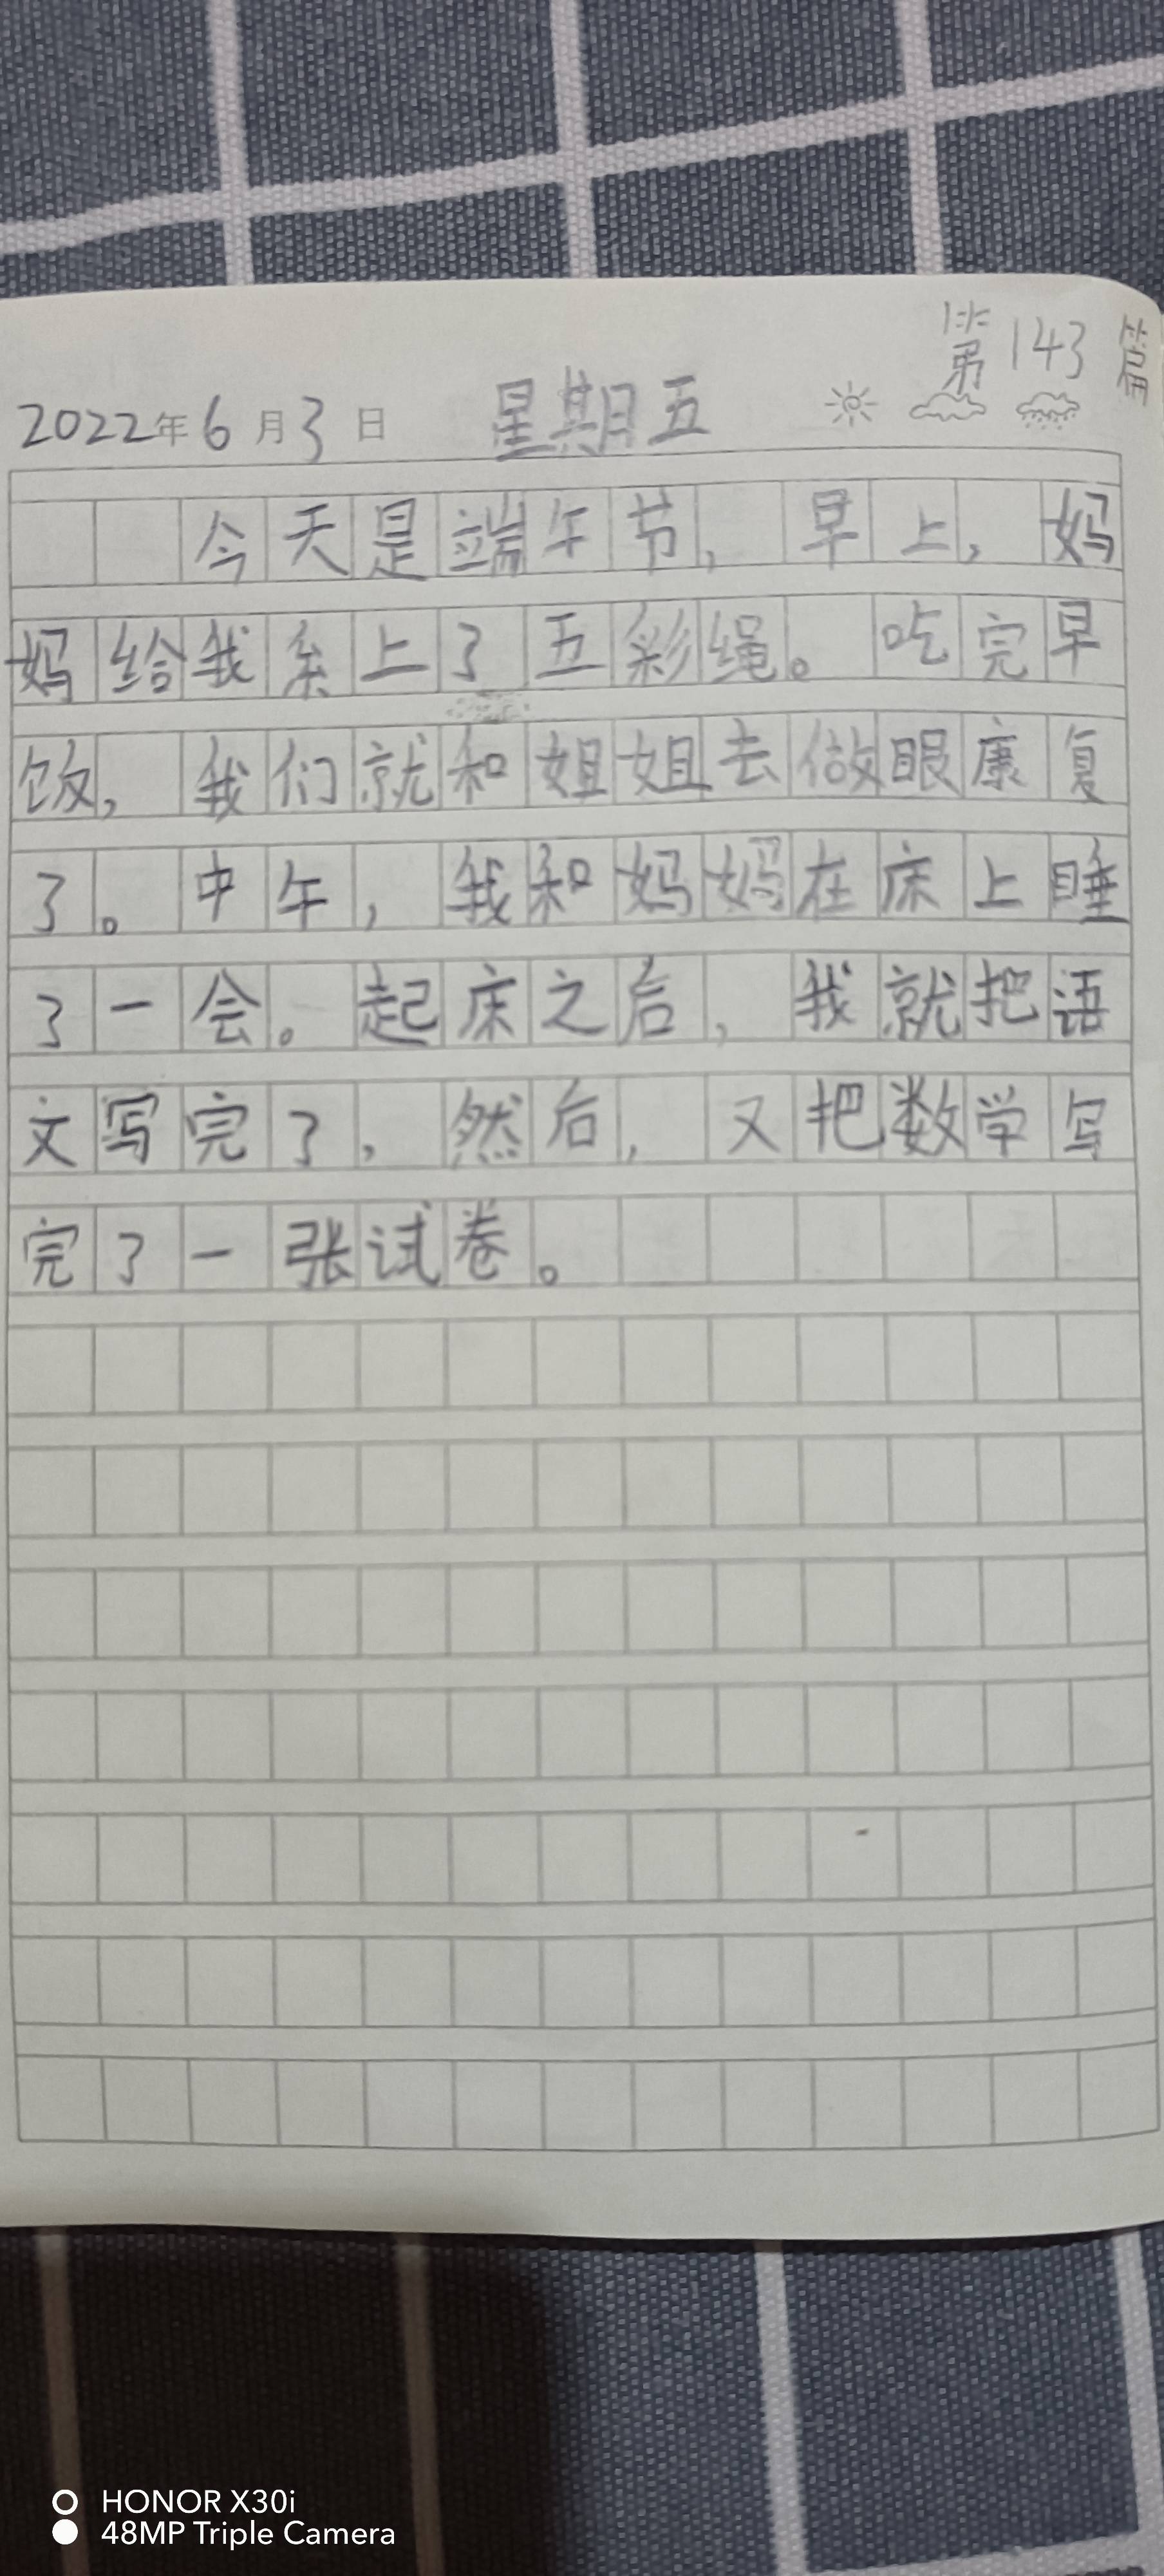 第143篇
2022年6月3日 星期五
今天是端午节,早上,妈
妈给我系上了五彩绳。吃完早
饭,我们就和姐姐去做眼康复
了。中午,我和妈妈在床上睡
了一会。起床之后,我就把语
文写完了,然后,又把数学写
完了一张试卷。
HONOR X30i
48MP Triple Camera